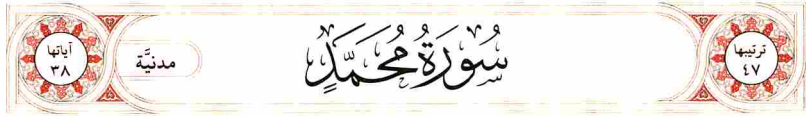 ترتيبها
٤٧
سُورَةُ مُحَمَّدٍ
مدنيَّة
آياتها
٣٨